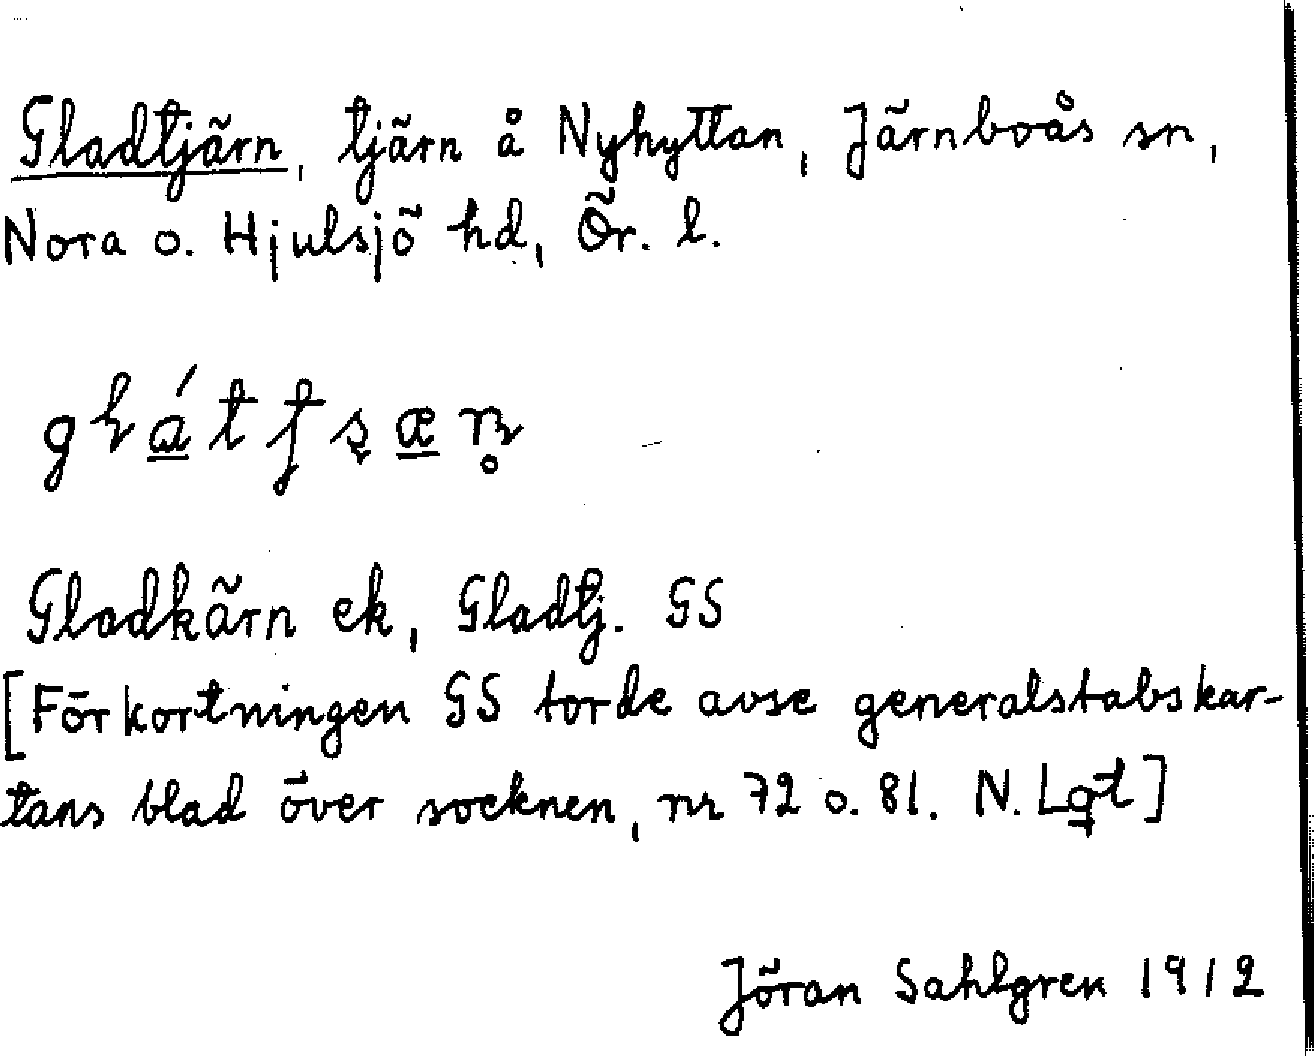 Gladtjärn, tjärn å Nyhyttan, Järnboås sn,
Nora o. Hjulsjö hd, Ör. l.
Gladkärn ek, Gladtj. GS
[Förkortningen GS torde avse generalstabskar-
tans blad över socknen, nr 72 o. 81. N. Lgt]
Jöran Sahlgren 1912